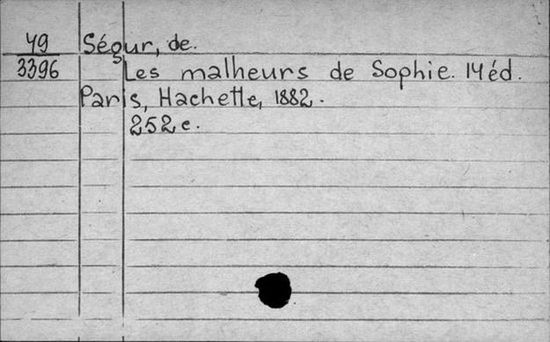 49
3396
Ségur, de.
Les malheurs de Sophie. 14 éd.
Paris, Hachette, 1882.
252 c.